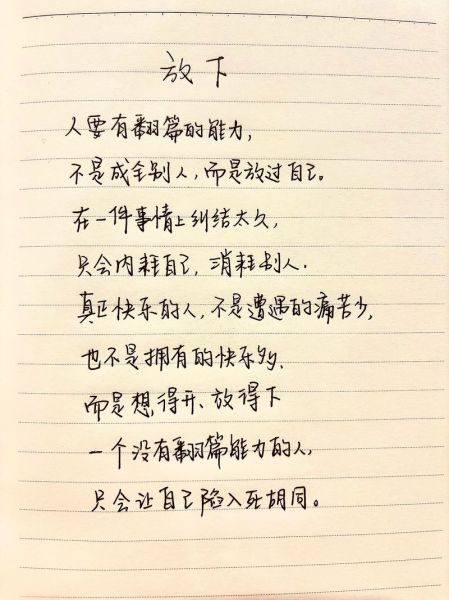 放下
人要有翻篇的能力,
不是成全别人,而是放过自己。
在一件事情上纠结太久,
只会内耗自己,消耗别人.
真正快乐的人,不是遭遇的痛苦少,
也不是拥有的快乐多,
而是想得开、放得下
一个没有翻篇能力的人,
只会让自己陷入死胡同。